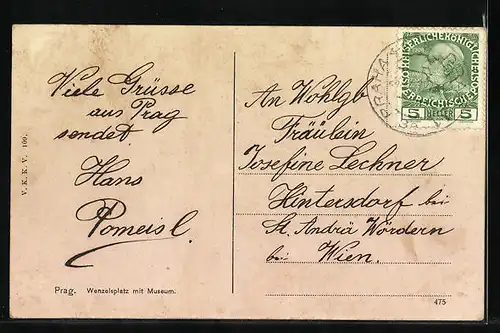 Viele Grüsse
aus Prag
sendet
Hans
Pomeisl.
An Wohlgb
Fräulein
Josefine Lechner
Hintersdorf bei
St. Andrä Wördern
bei Wien.
5 HELLER 5
PRAHA
V. K. K. V. 100.
Prag. Wenzelsplatz mit Museum.
475